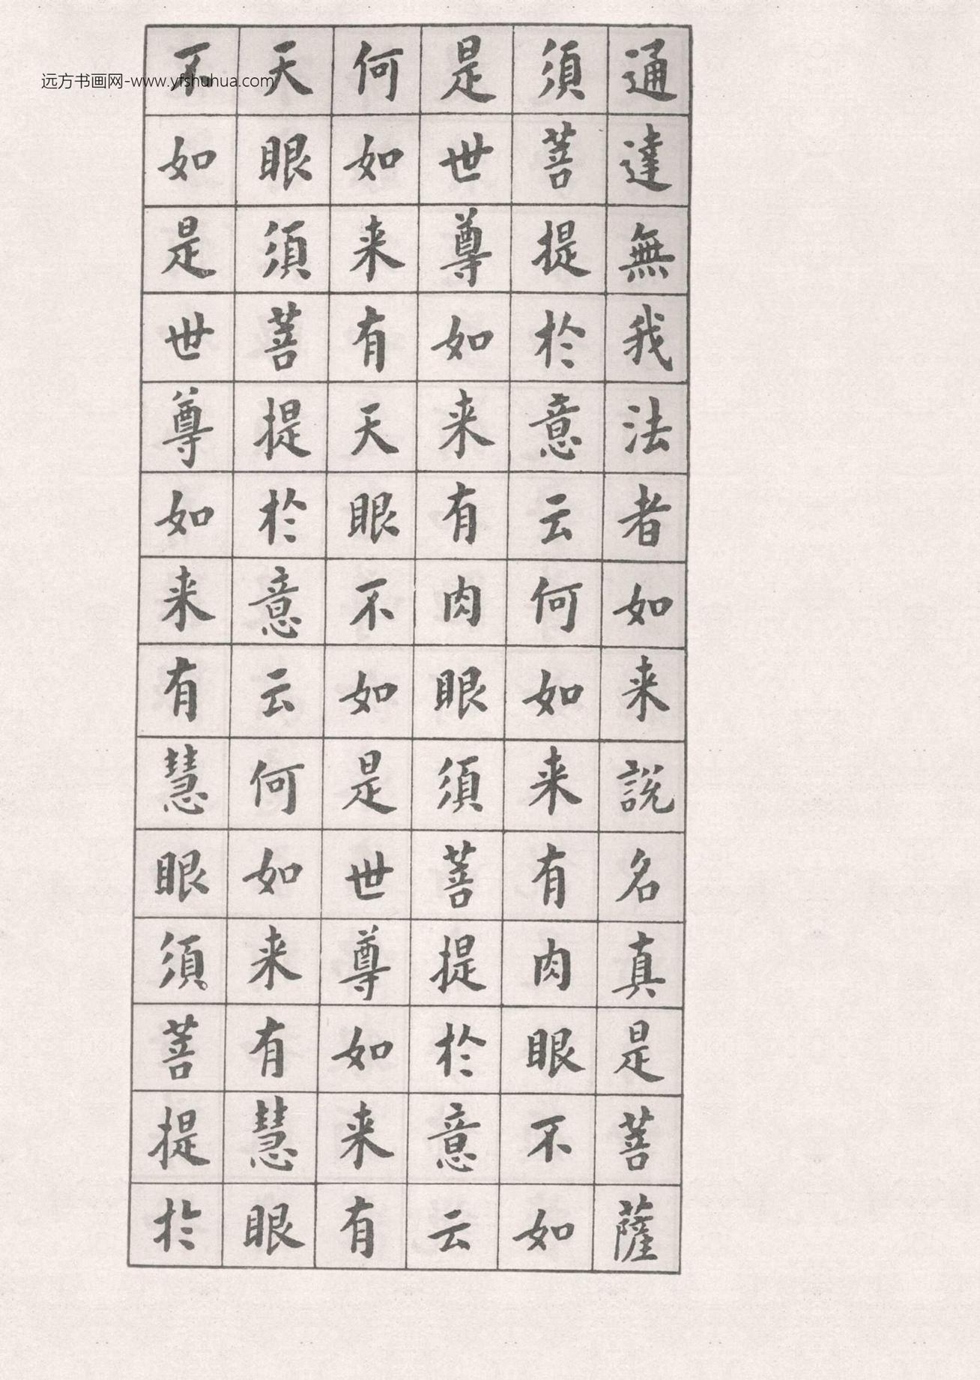 远方书画网-www.yfshuhua.com
通達無我法者如来說名真是菩薩
須菩提於意云何如来有肉眼不如
是世尊如来有肉眼須菩提於意云
何如来有天眼不如是世尊如来有
天眼須菩提於意云何如来有慧眼
不如是世尊如来有慧眼須菩提於